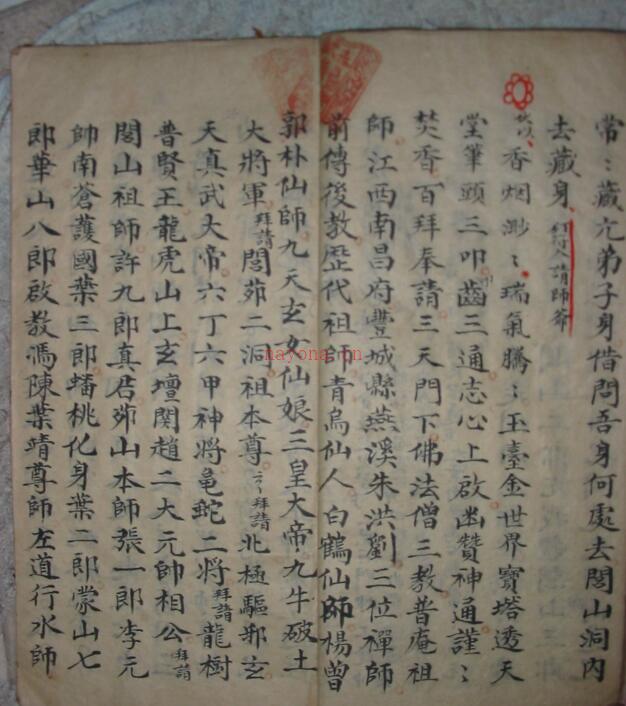 常〻藏亢弟子身借問吾身何處去閭山洞內
去藏身 請師爺
香烟渺〻瑞氣騰〻玉臺金世界寳塔透天
堂筆頭三叩齒三通志心上啟幽贊神通謹〻
焚香百拜奉請三天門下佛法僧三教普庵祖
師江西南昌府豐城縣燕溪朱洪劉三位禪師
前傳後教歷代祖師青烏仙人白鶴仙師楊曾
郭朴仙師九天玄女仙娘三皇大帝九牛破土
大將軍拜請閭茆二洞祖本尊〻拜請北極驅邪玄
天真武大帝六丁六甲神將龟蛇二將拜請龍樹
普賢王龍虎山上玄壇関趙二大元帥相公拜請
閭山祖師許九郎真君茆山本師張一郎李元
帥南蒼護國葉三郎蟠桃化身葉二郎蒙山七
郎華山八郎啟教馮陳葉靖尊師左道行水師
nayona.cn